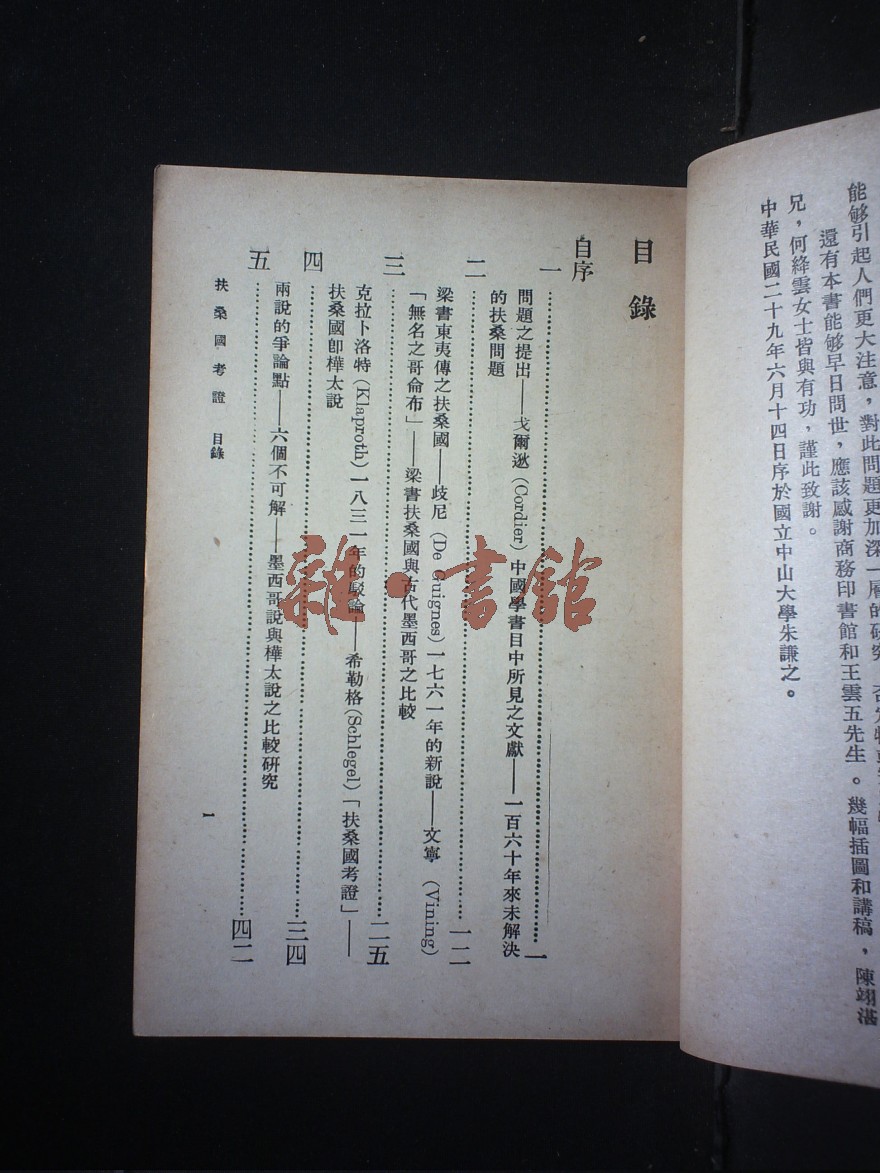 能够引起人們更大注意，對此問題更加深一層的研究
還有本書能够早日問世，應該感謝商務印書館和王雲五先生。幾幅插圖和講稿，陳翊湛
兄，何絳雲女士皆與有功，謹此致謝。
中華民國二十九年六月十四日序於國立中山大學朱謙之。
目錄
自序
一……一
問題之提出——戈爾逖（Cordier）中國學書目中所見之文獻——一百六十年來未解決
的扶桑問題
二……一二
梁書東夷傳之扶桑國——歧尼（De Guignes）一七六一年的新說——文寧（Vining）
「無名之哥侖布」——梁書扶桑國與古代墨西哥之比較
三……二五
克拉卜洛特（Klaproth）一八三一年的駁論——希勒格（Schlegel）「扶桑國考證」——
扶桑國卽樺太說
四……三四
兩說的爭論點——六個不可解——墨西哥說與樺太說之比較硏究
五……四二
扶桑國考證 目錄
1
雜·書館